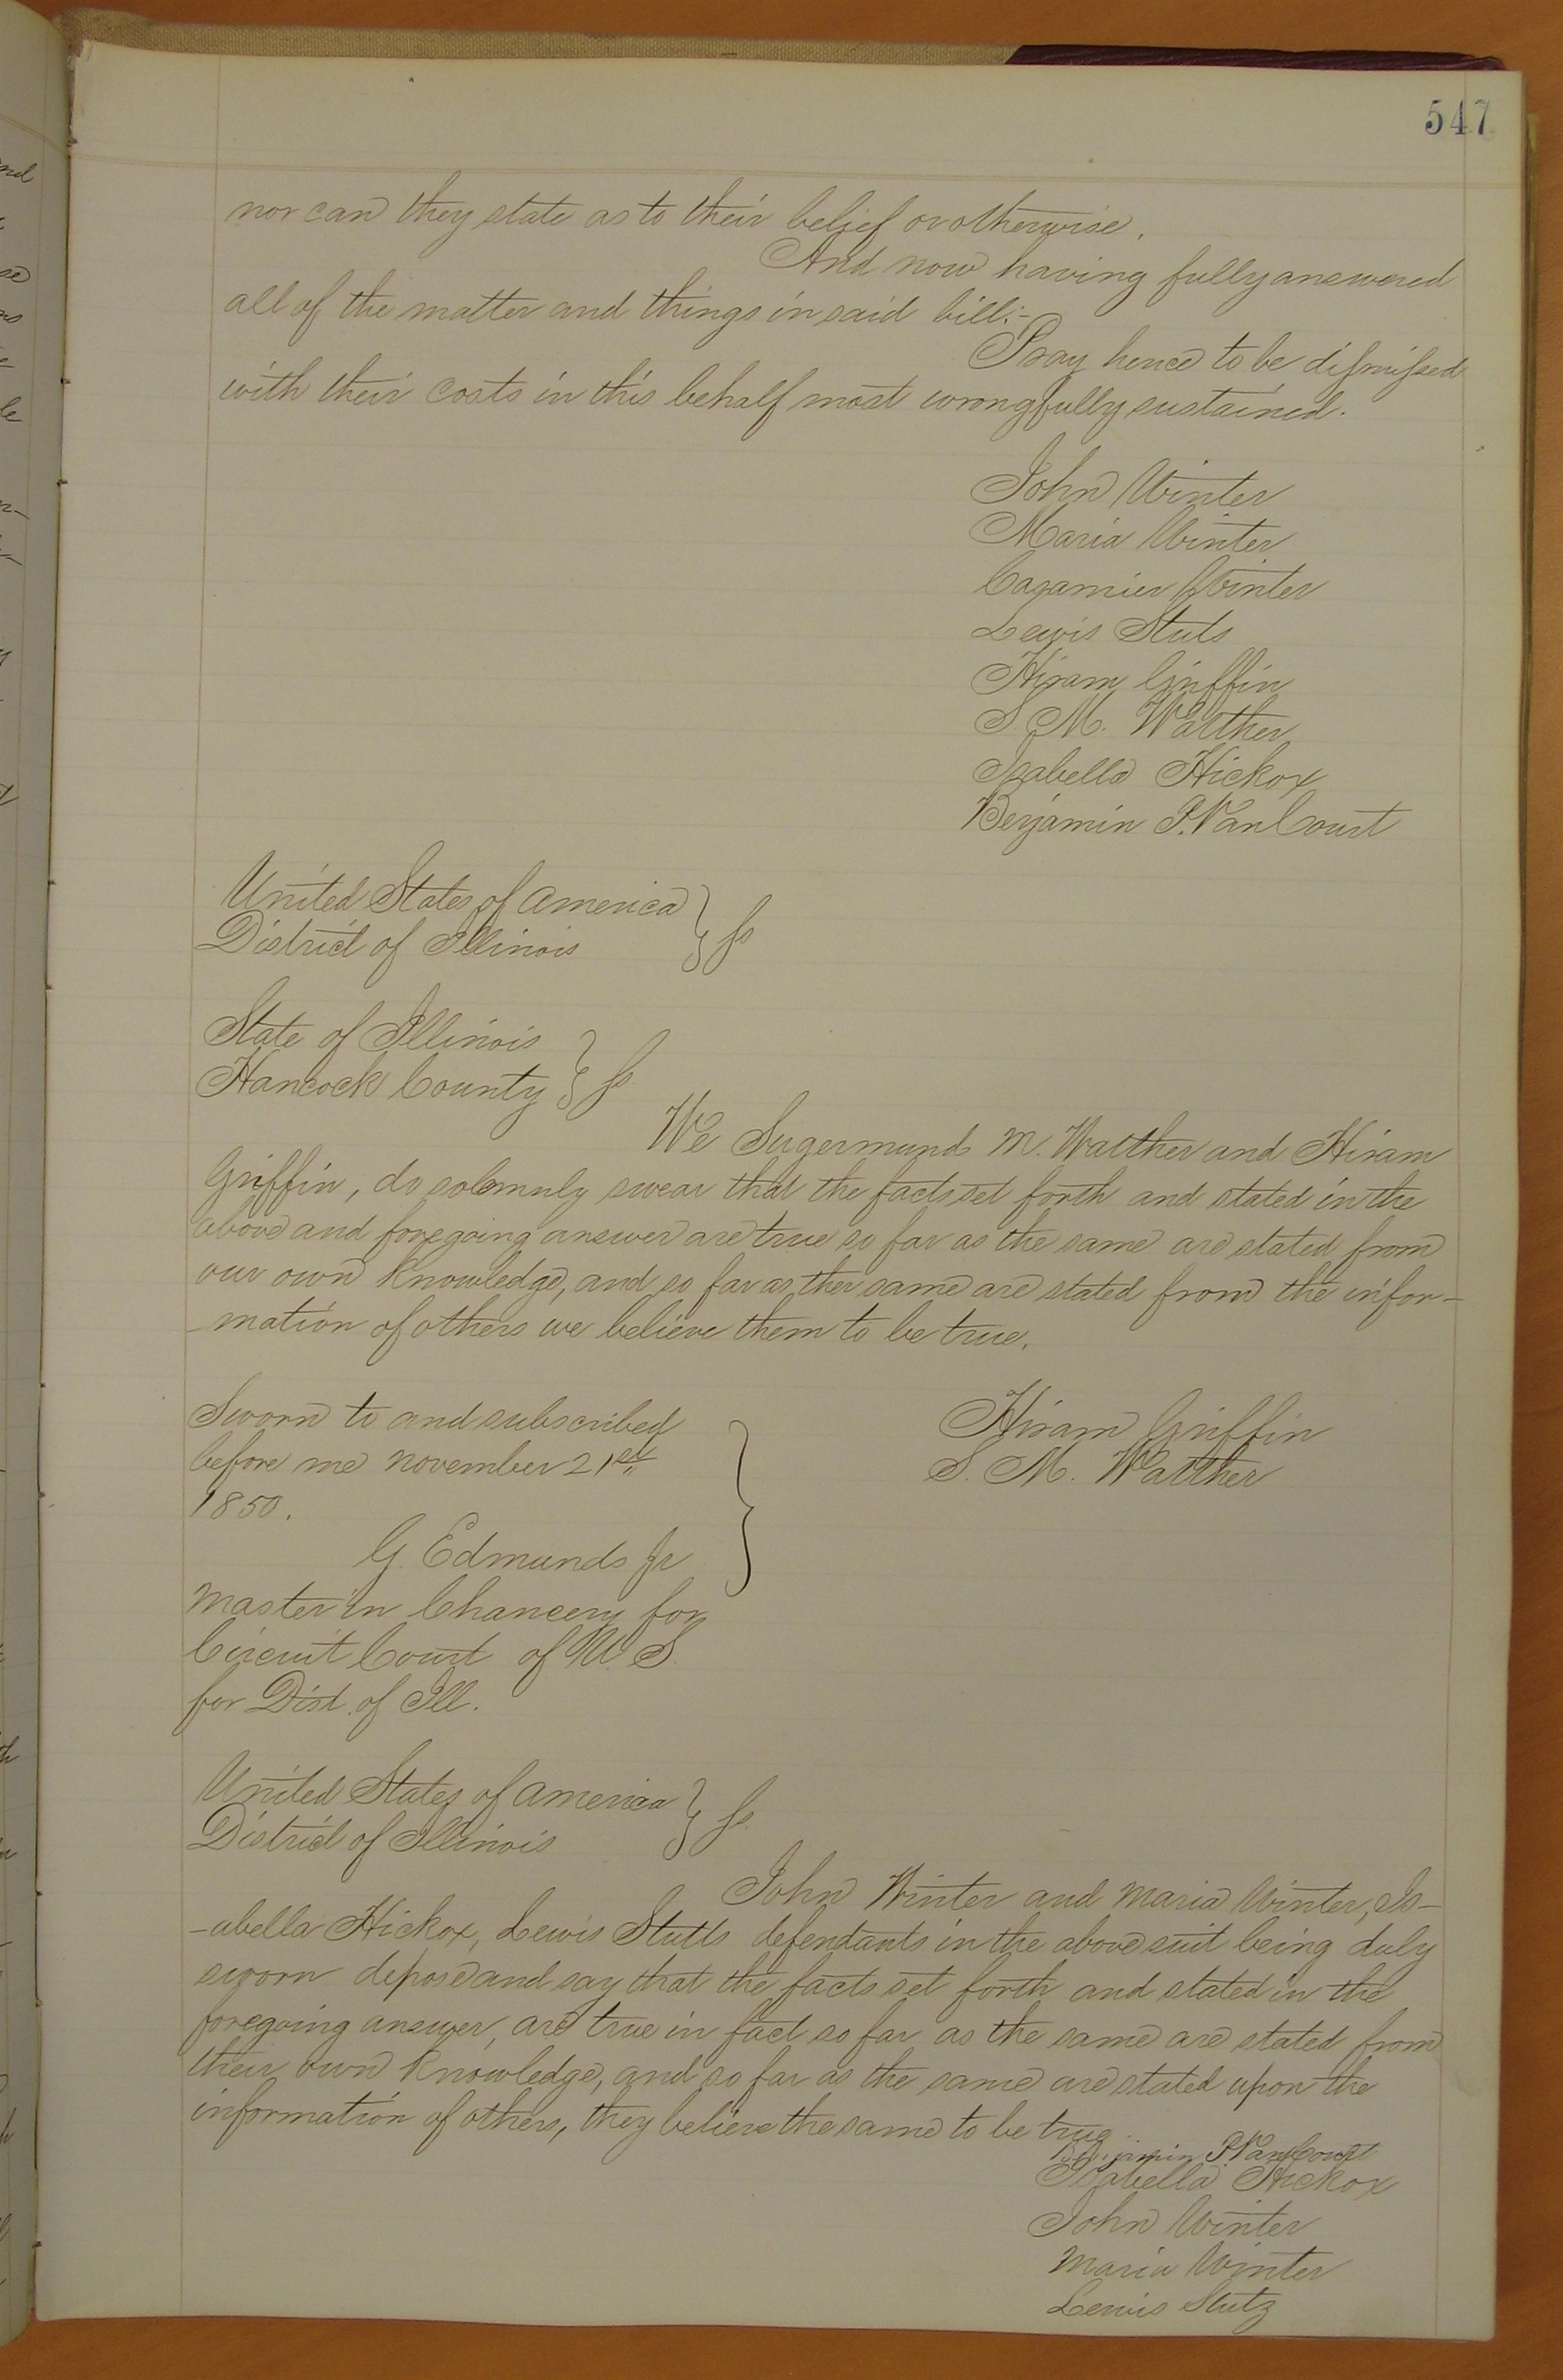 547
nor can they state as to their belief or otherwise.
And now having fully answered
all of the matter and things in said bill:-
Pray hence to be dismissed
with their costs in this behalf most wrongfully sustained.
John Winter
Maria Winter
Cazamier Winter
Lewis Stuts
Hiram Griffin
S M. Walther
Isabella Hickox
Benjamin P. VanCourt
United States of America } ss
District of Illinois
State of Illinois } ss.
Hancock County
We Sugermunds M. Walther and Hiram
Griffin, do solemnly swear that the facts set forth and stated in the
above and foregoing answer are true so far as the same are stated from
our own knowledge, and so far as ther same are stated from the infor-
-mation of others we believe them to be true.
Sworn to and subscribed
before me November 21st
1850.
G. Edmunds Jr
Master in Chancery for
Circuit Court of U. S.
for Dist. of Ill.
Hiram Griffin
S. M. Walther
United States of America } ss.
District of Illinois
John Winter and Maria Winter, Is-
-abella Hickox, Lewis Stutts defendants in the above suit being duly
sworn depose and say that the facts set forth and stated in the
foregoing answer, are true in fact so far as the same are stated from
their own knowledge, and so far as the same are stated upon the
information of others, they believe the same to be true.
Benjamin P. VanCourt
Isabella Hickox
John Winter
Maria Winter
Lewis Stutz